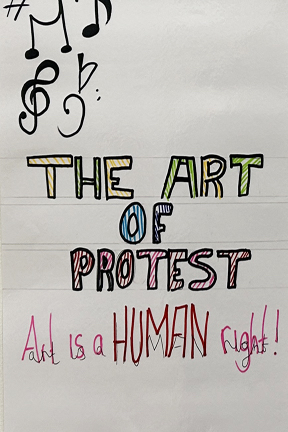 THE ART
OF
PROTEST
Art is a HUMAN right!